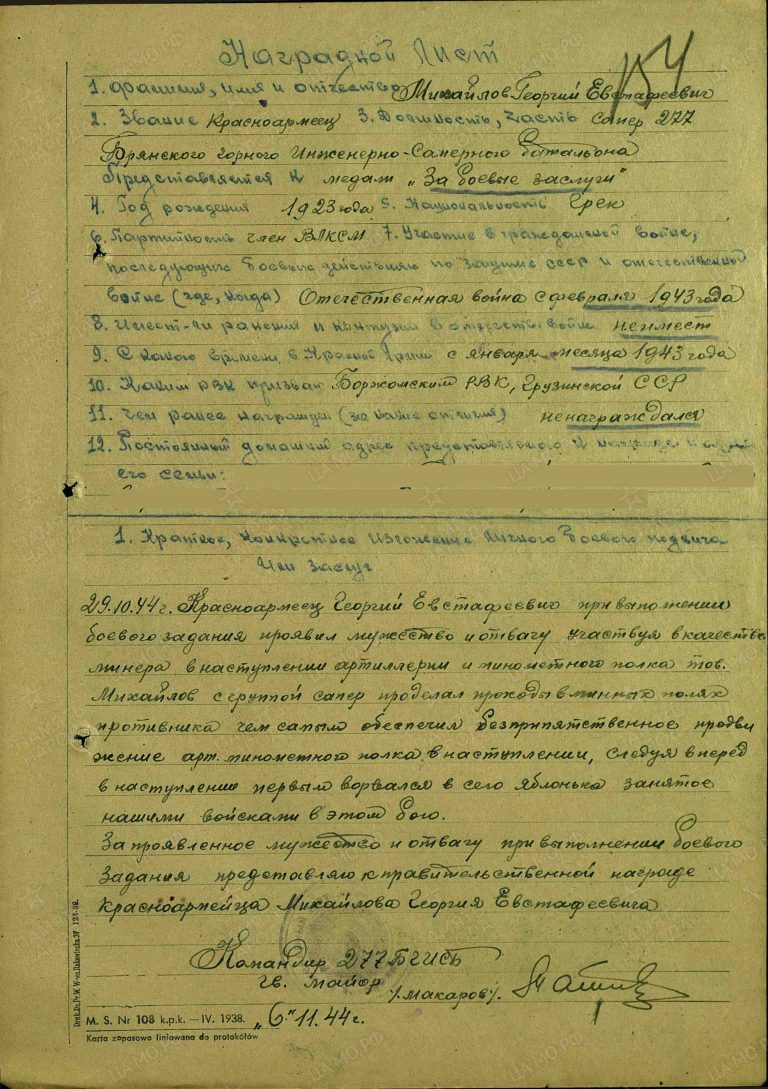 Наградной Лист
1. Фамилия, имя и отчество Михайлов Георгий Евстафеевич
2. Звание Красноармеец 3. Должность, часть сапер 277
Брянского горного Инженерно-Саперного батальона
Представляется к медали „За боевые заслуги"
4. Год рождения 1923 года 5. Национальность Грек
6. Партийность член ВЛКСМ 7. Участие в гражданской войне,
последующих боевых действиях по защите СССР и отечественной
войне (где, когда) Отечественная война с февраля 1943 года
8. Имеет-ли ранения и контузии в отечеств. войне неимеет
9. С какого времени в Красной Армии с января месяца 1943 года
10. Каким РВК призван Боржомским РВК, Грузинской ССР
11. Чем ранее награжден (за какие отличия) ненаграждался
12. Постоянный домашний адрес представляемого к награде и
его семьи:
1. Краткое, конкретное изложение личного боевого подвига
или заслуг
29.10.44 г. Красноармеец Георгий Евстафеевич при выполнении
боевого задания проявил мужество и отвагу участвуя в качестве
минера в наступлении артиллерии и минометного полка тов.
Михайлов с группой сапер проделал проходы в минных полях
противника чем самым обеспечил безприпятственное продви
жение арт. минометного полка в наступлении, следуя вперед
в наступлении первым ворвался в село Яблонька занятое
нашими войсками в этом бою.
За проявленное мужество и отвагу при выполнении боевого
задания представляю к правительственной награде
красноармейца Михайлова Георгия Евстафеевича
Командир 277 БГИСБ
гв. майор /Макаров/.
„6" 11.44 г.
M. S. Nr 108 k.p.k. — IV. 1938.
Karta zapasowa liniowana do protokółów